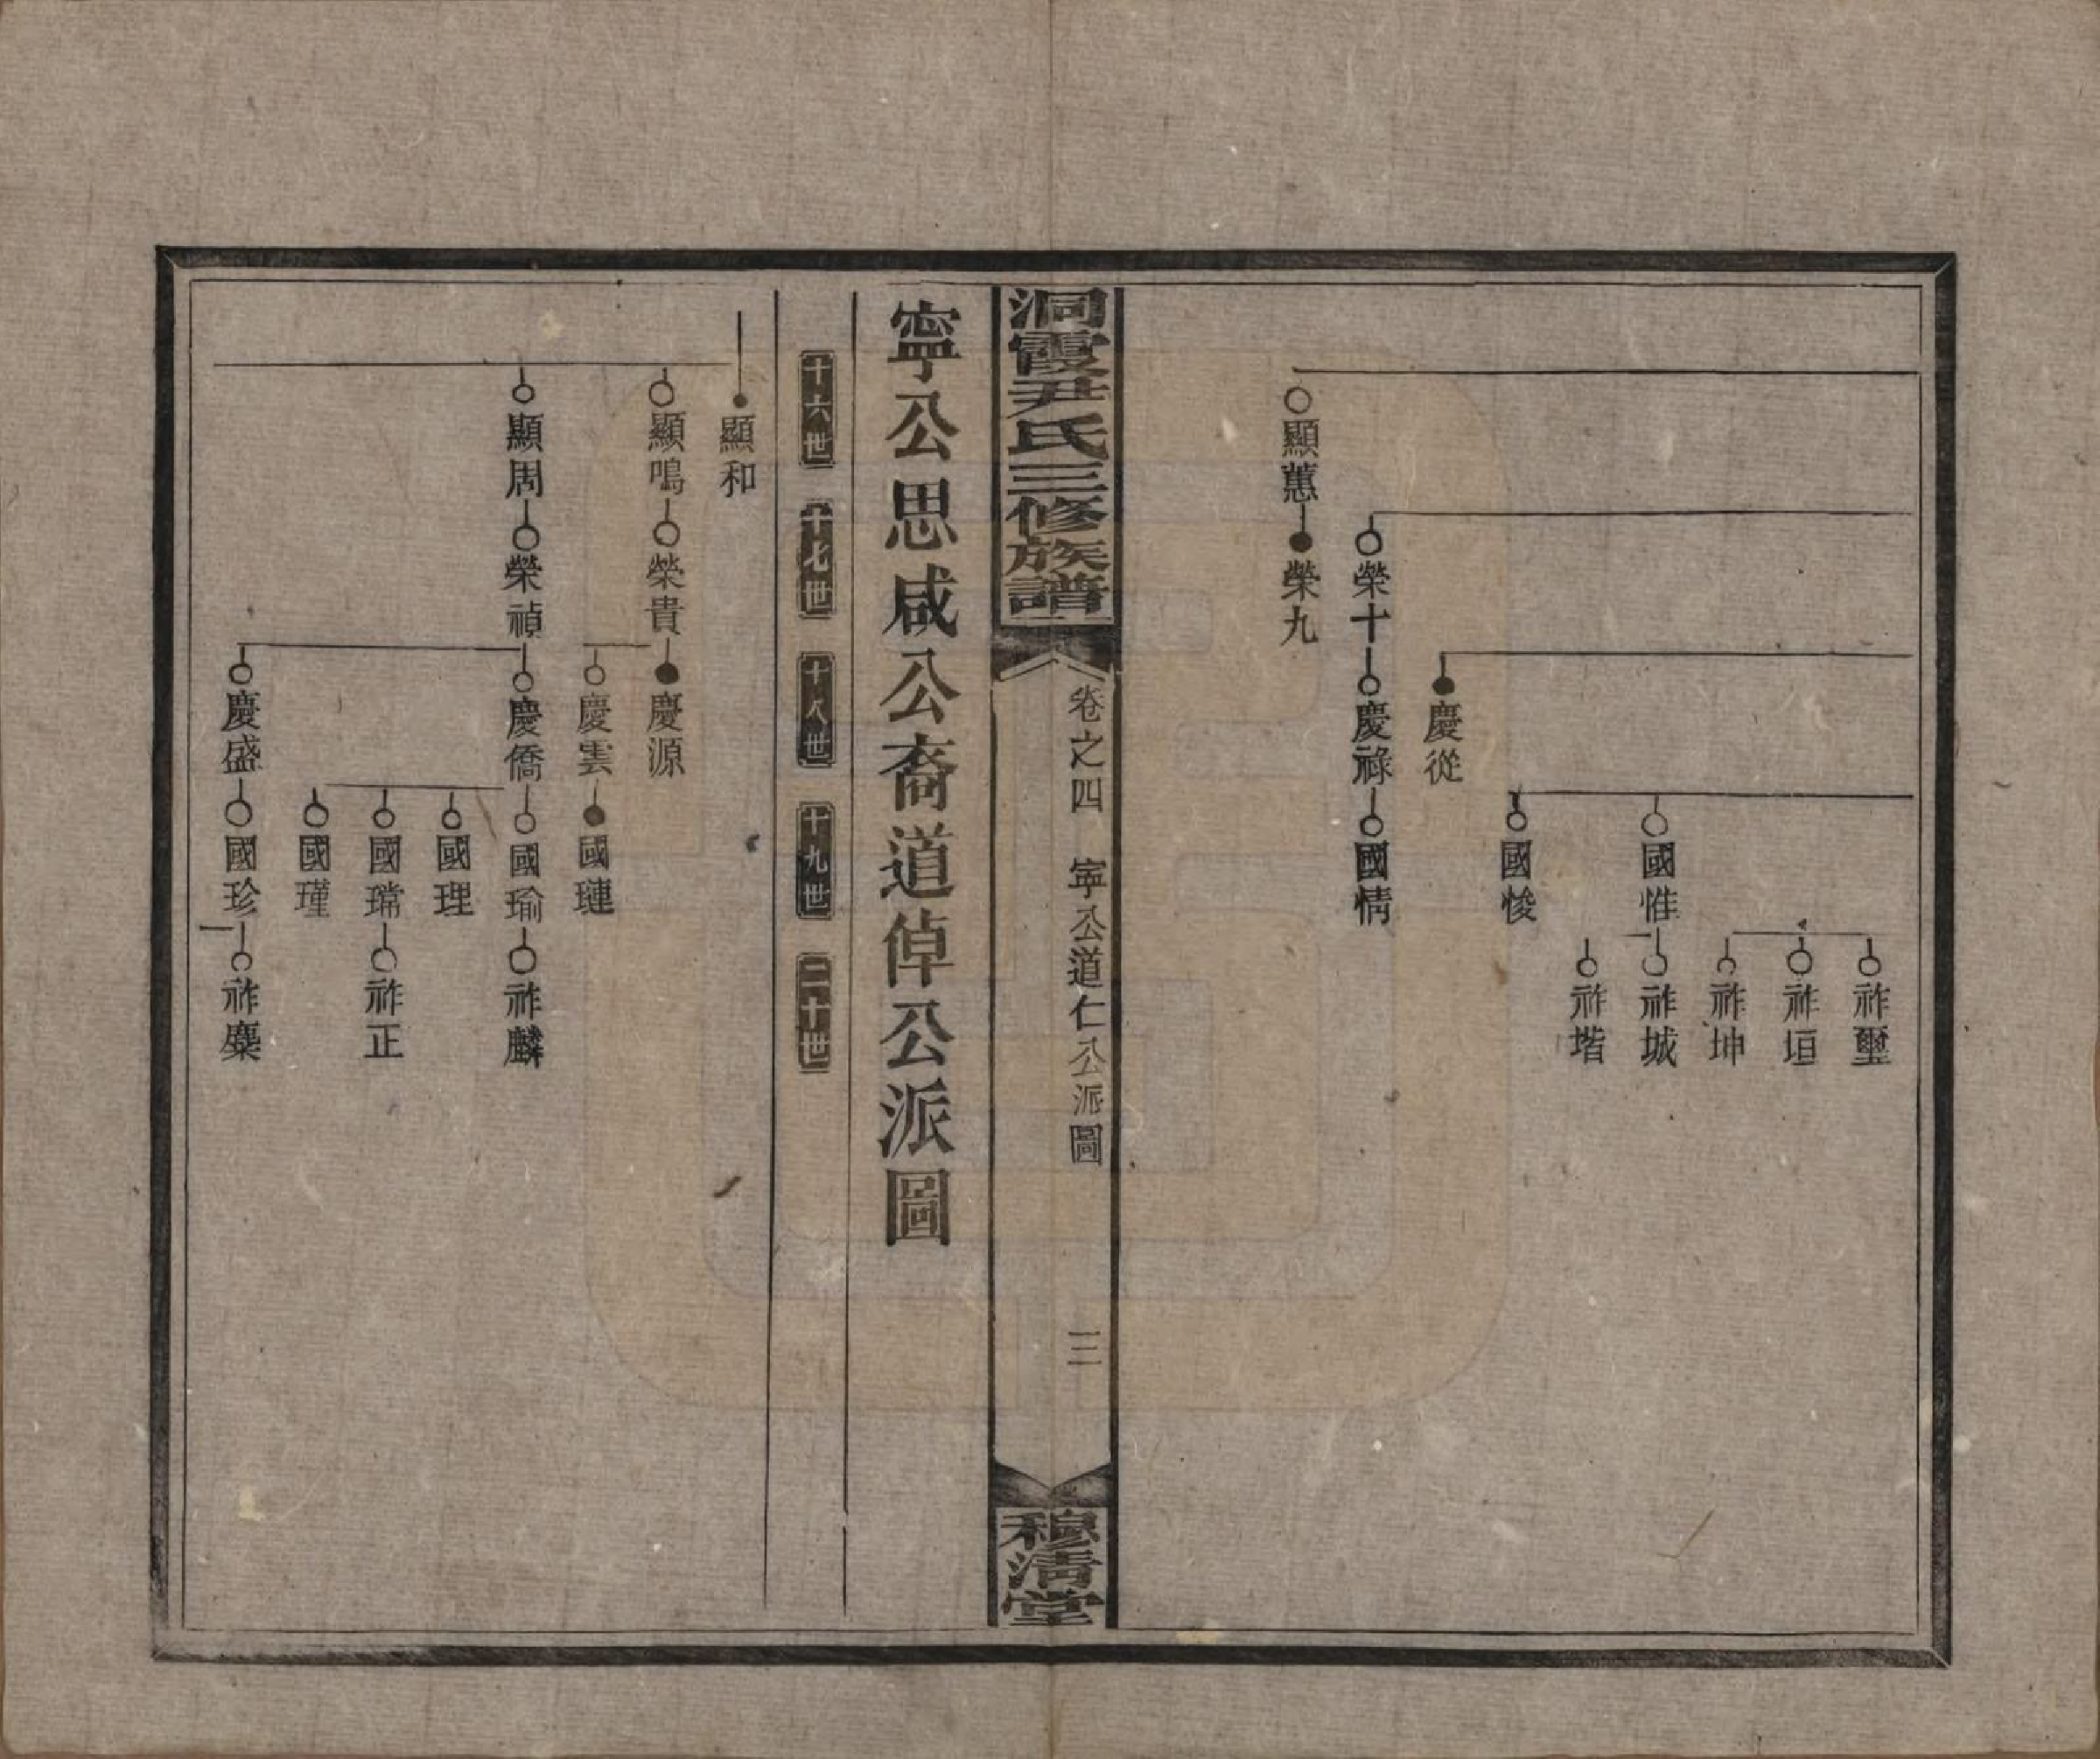 祚璽
祚垣
祚坤
國惟
祚城
祚堦
國悛
慶從
榮十
慶祿
國情
顯蕙
榮九
洞霞尹氏三修族譜
卷之四 寧公道仁公派圖
三
穆清堂
寧公思咸公裔道倬公派圖
十六世 十七世 十八世 十九世 二十世
顯和
顯鳴
榮貴
慶源
慶雲
國璉
顯周
榮禎
慶僑
國瑜
祚麟
國理
國瑺
祚正
國瑾
慶盛
國珍
祚麋